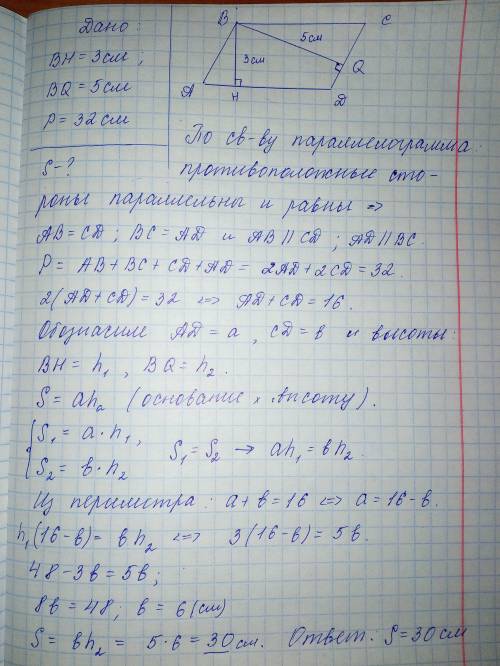 Дано:
BH = 3см;
BQ = 5см
P = 32см
S - ?
B
C
5см
3см
Q
A
H
D
По св-ву параллелограмма
противоположные сто-
роны параллельны и равны =>
AB = CD; BC = AD и AB || CD; AD || BC.
P = AB + BC + CD + AD = 2AD + 2CD = 32.
2(AD + CD) = 32 <=> AD + CD = 16.
Обозначим AD = a, CD = в и высоты:
BH = h₁, BQ = h₂.
S = ahₐ (основание × высоту).
{ S₁ = a·h₁,
S₂ = в·h₂
S₁ = S₂ → ah₁ = вh₂.
Из периметра: a + в = 16 <=> a = 16 - в.
h₁(16 - в) = вh₂ <=> 3(16 - в) = 5в.
48 - 3в = 5в;
8в = 48; в = 6 (см)
S = вh₂ = 5·6 = 30 см. Ответ: S = 30 см